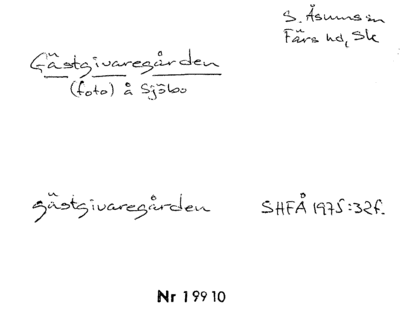 S. Åsumsin
Färs hd, Sk
Gästgivaregården
(foto) å Sjöbo
gästgivaregården SHFÅ 1975:32f.
Nr 19910